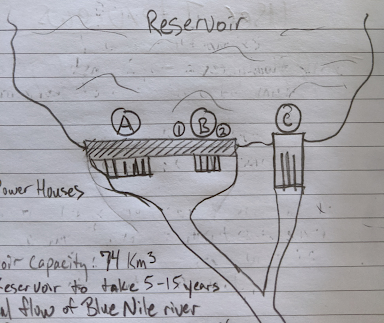 Reservoir
A ① B ② C
Power Houses
oir Capacity: 74 Km³
Reservoir to take 5-15 years
flow of Blue Nile river